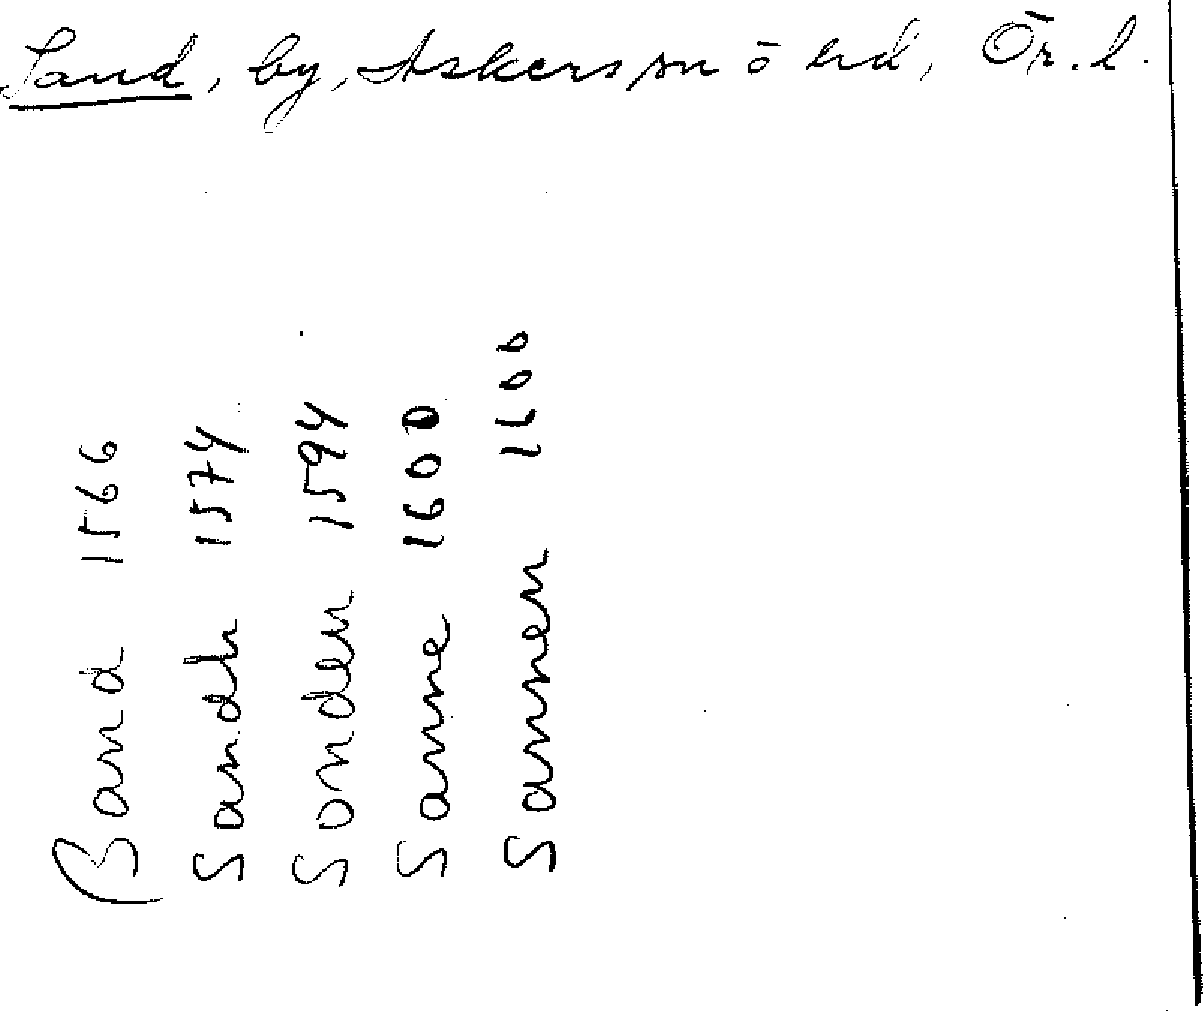 Sand, by, Askers sn ö hd, Ör. l.
Band 1566
Sandh 1574
Sonden 1594
Sanne 1600
Sannen 1600